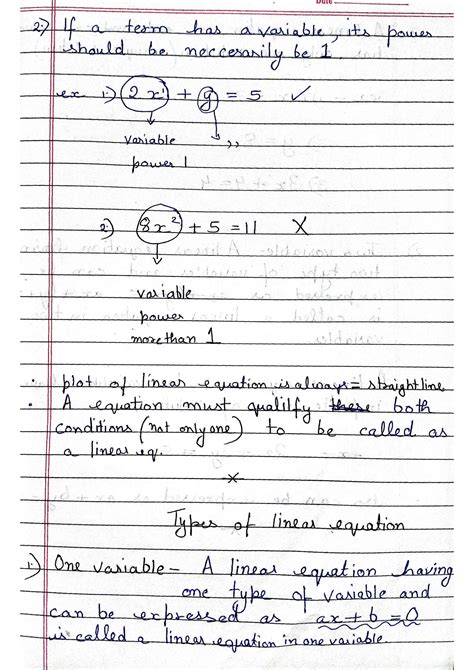 Date
2.) If a term has a variable, its power
should be neccesarily be 1
ex 1.) 2x¹ + y = 5 ✓
variable ,,
power 1
2.) 8x² + 5 = 11 X
variable
power
more than 1
• plot of linear equation is always = straight line
• A equation must qualilfy these both
conditions (not only one) to be called as
a linear eq.
-x-
Types of linear equation
1.) One variable - A linear equation having
one type of variable and
can be expressed as ax + b = 0
is called a linear equation in one variable.